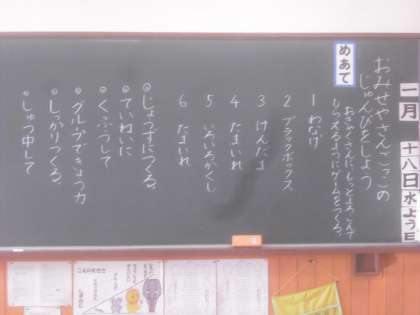 一月十八日水よう日
おみせやさんごっこの
じゅんびをしよう
めあて
おきゃくさんに、もっとよろこんで
もらえるようにゲームをつくる。
1 わなげ
2 ブラックボックス
3 けんだま
4 たまいれ
5 いろいろかくし
6 たまいれ
じょうずにつくる。
ていねいに
くふうして
グループできょう力
しっかりつくる。
しゅう中して